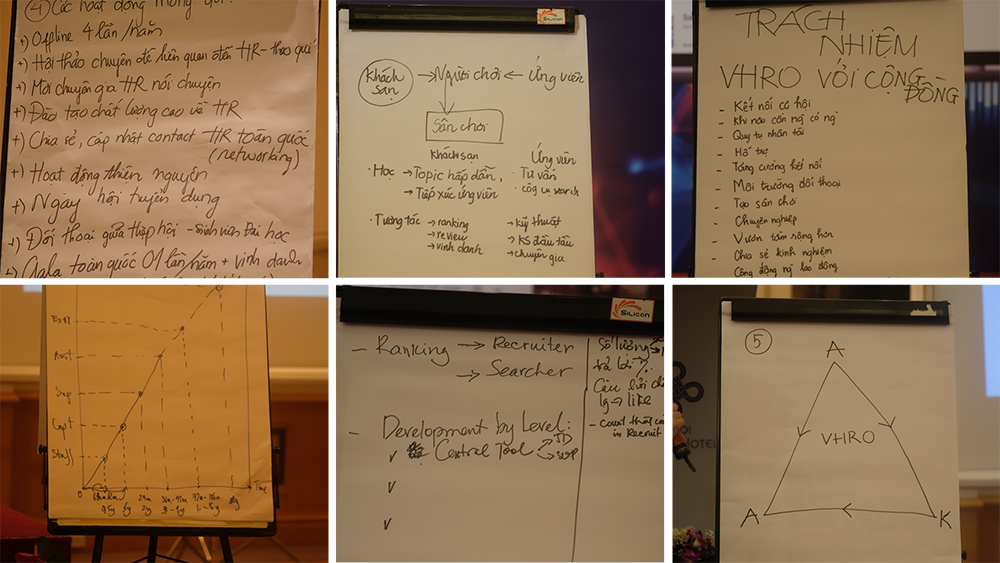 ④ Các hoạt động mong đợi:
+) Offline 4 lần/năm
+) Hội thảo chuyên đề liên quan đến HR - theo quý
+) Mời chuyên gia HR nói chuyện
+) Đào tạo chất lượng cao về HR
+) Chia sẻ, cập nhật contact HR toàn quốc
(networking)
+) Hoạt động thiện nguyện
+) Ngày hội tuyển dụng
+) Đối thoại giữa Hiệp hội - sinh viên Đại học
+) Gala toàn quốc 01 lần/năm + vinh danh
SILICON
Khách sạn → Người chơi ← Ứng viên
Sân chơi
Khách sạn Ứng viên
· Học → Topic hấp dẫn, · Tư vấn
→ Tiếp xúc ứng viên · công cụ search
· Tương tác → ranking → kỹ thuật
→ review → KS đầu tiên
→ vinh danh → chuyên gia
TRÁCH
NHIỆM
VHRO VỚI CỘNG
ĐỒNG
- Kết nối cơ hội
- Khi nào cần ng có ng
- Quy tụ nhân tài
- Hỗ trợ
- Tăng cường kết nối
- Môi trường đối thoại
- Tạo sân chơi
- Chuyên nghiệp
- Vươn tầm sống hơn
- Chia sẻ kinh nghiệm
Cộng đồng ng lao động
Asst
Sup
Capt
Staff
0
Time
SILICON
- Ranking → Recruiter
→ Searcher
- Development by Level:
✓ Central Tool → JD
→ SOP
✓
✓
Số lượng
trả lời %
Câu hỏi
→ like
- Count
in Recruit
⑤
A
VHRO
A K
HOTEL